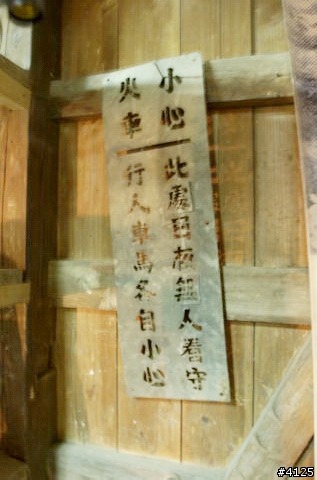 小心
火車
此處日夜無人看守
行人車馬各自小心
#4125